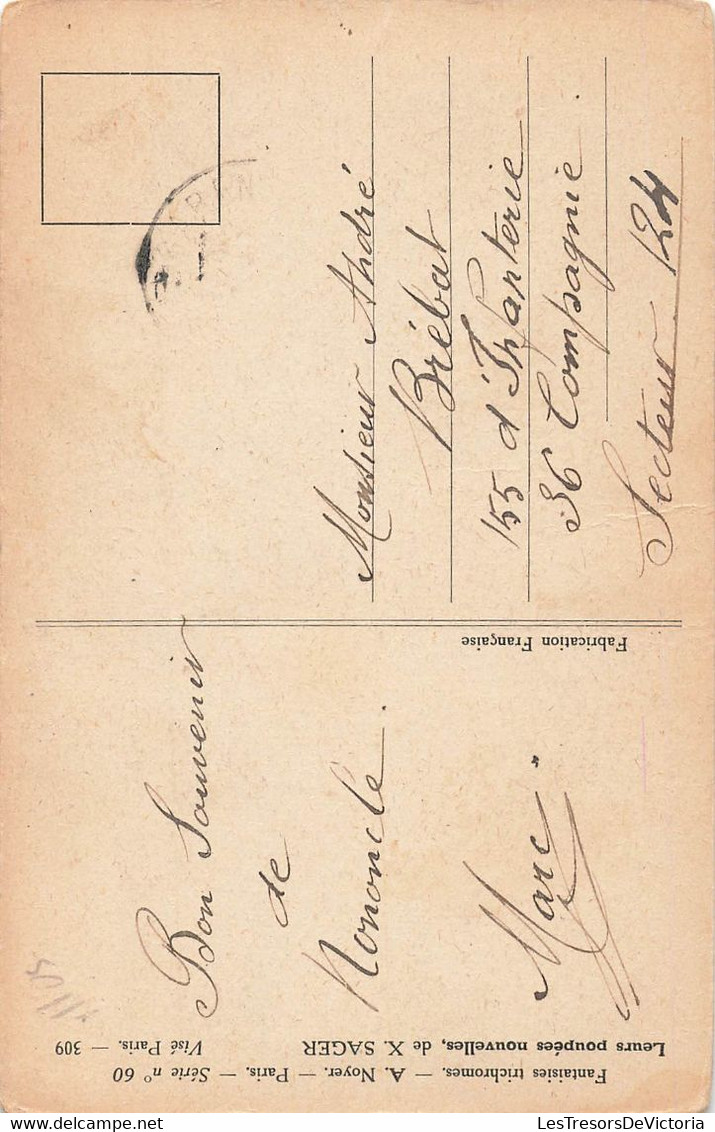 Bon Souvenir
de
Nononcle
Marc
Monsieur André
Brébat
155 d'Infanterie
36 Compagnie
Secteur 124
Fabrication Française
Fantaisies trichromes. — A. Noyer. — Paris. — Série n° 60
Leurs poupées nouvelles, de X. SAGER
Visé Paris. — 309
LesTresorsDeVictoria